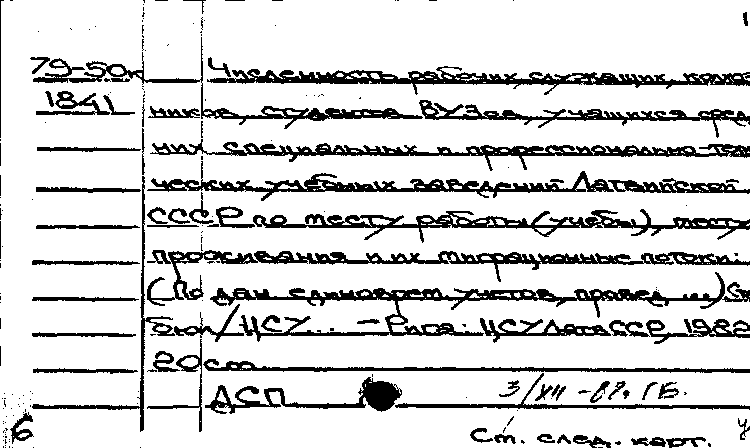 79-50к Численность рабочих, служащих, колхоз
1841 ников, студентов ВУЗов, учащихся сред
них специальных и профессионально-тех
ческих учебных заведений Латвийской
СССР по месту работы (учебы), месту
проживания и их миграционные потоки:
(По дан. единоврем. учетов, провед ...) Ст
бюл / ЦСУ... - Рига: ЦСУ ЛатвССР, 1982
20 см.
ДСП 3/XII -87.
6 См. след. карт.